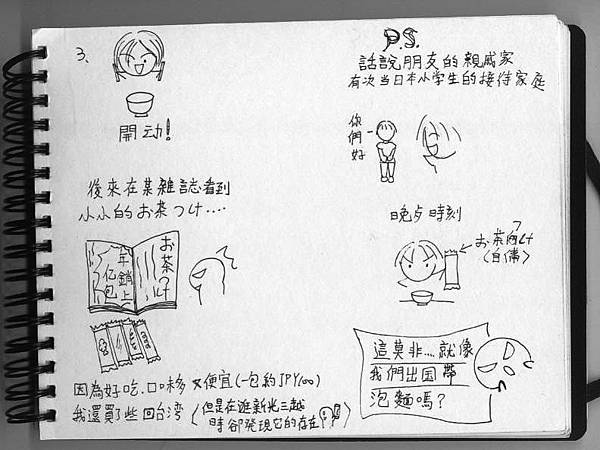 3、
開动!
後來在某雜誌看到
小小的お茶つけ....
お茶つけ
年銷上
亿包
因為好吃、口味多又便宜(一包約JPY100)
我還買了些回台湾(但是在逛新光三越
時卻發現它的存在)
P.S.
話說朋友的親戚家
有次当日本小学生的接待家庭
你們好
晚歺時刻
(自備)
這莫非...就像
我們出国帶
泡麵嗎?